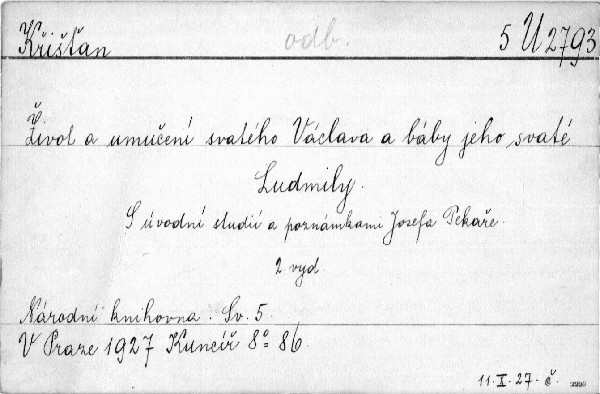 Křišťan odb. 5 U 2793
Život a umučení svatého Václava a báby jeho svaté
Ludmily.
S úvodní studií a poznámkami Josefa Pekaře.
2 vyd.
Národní knihovna. Sv. 5.
V Praze 1927 Kuncíř 8º 86.
11. X. 27. č.